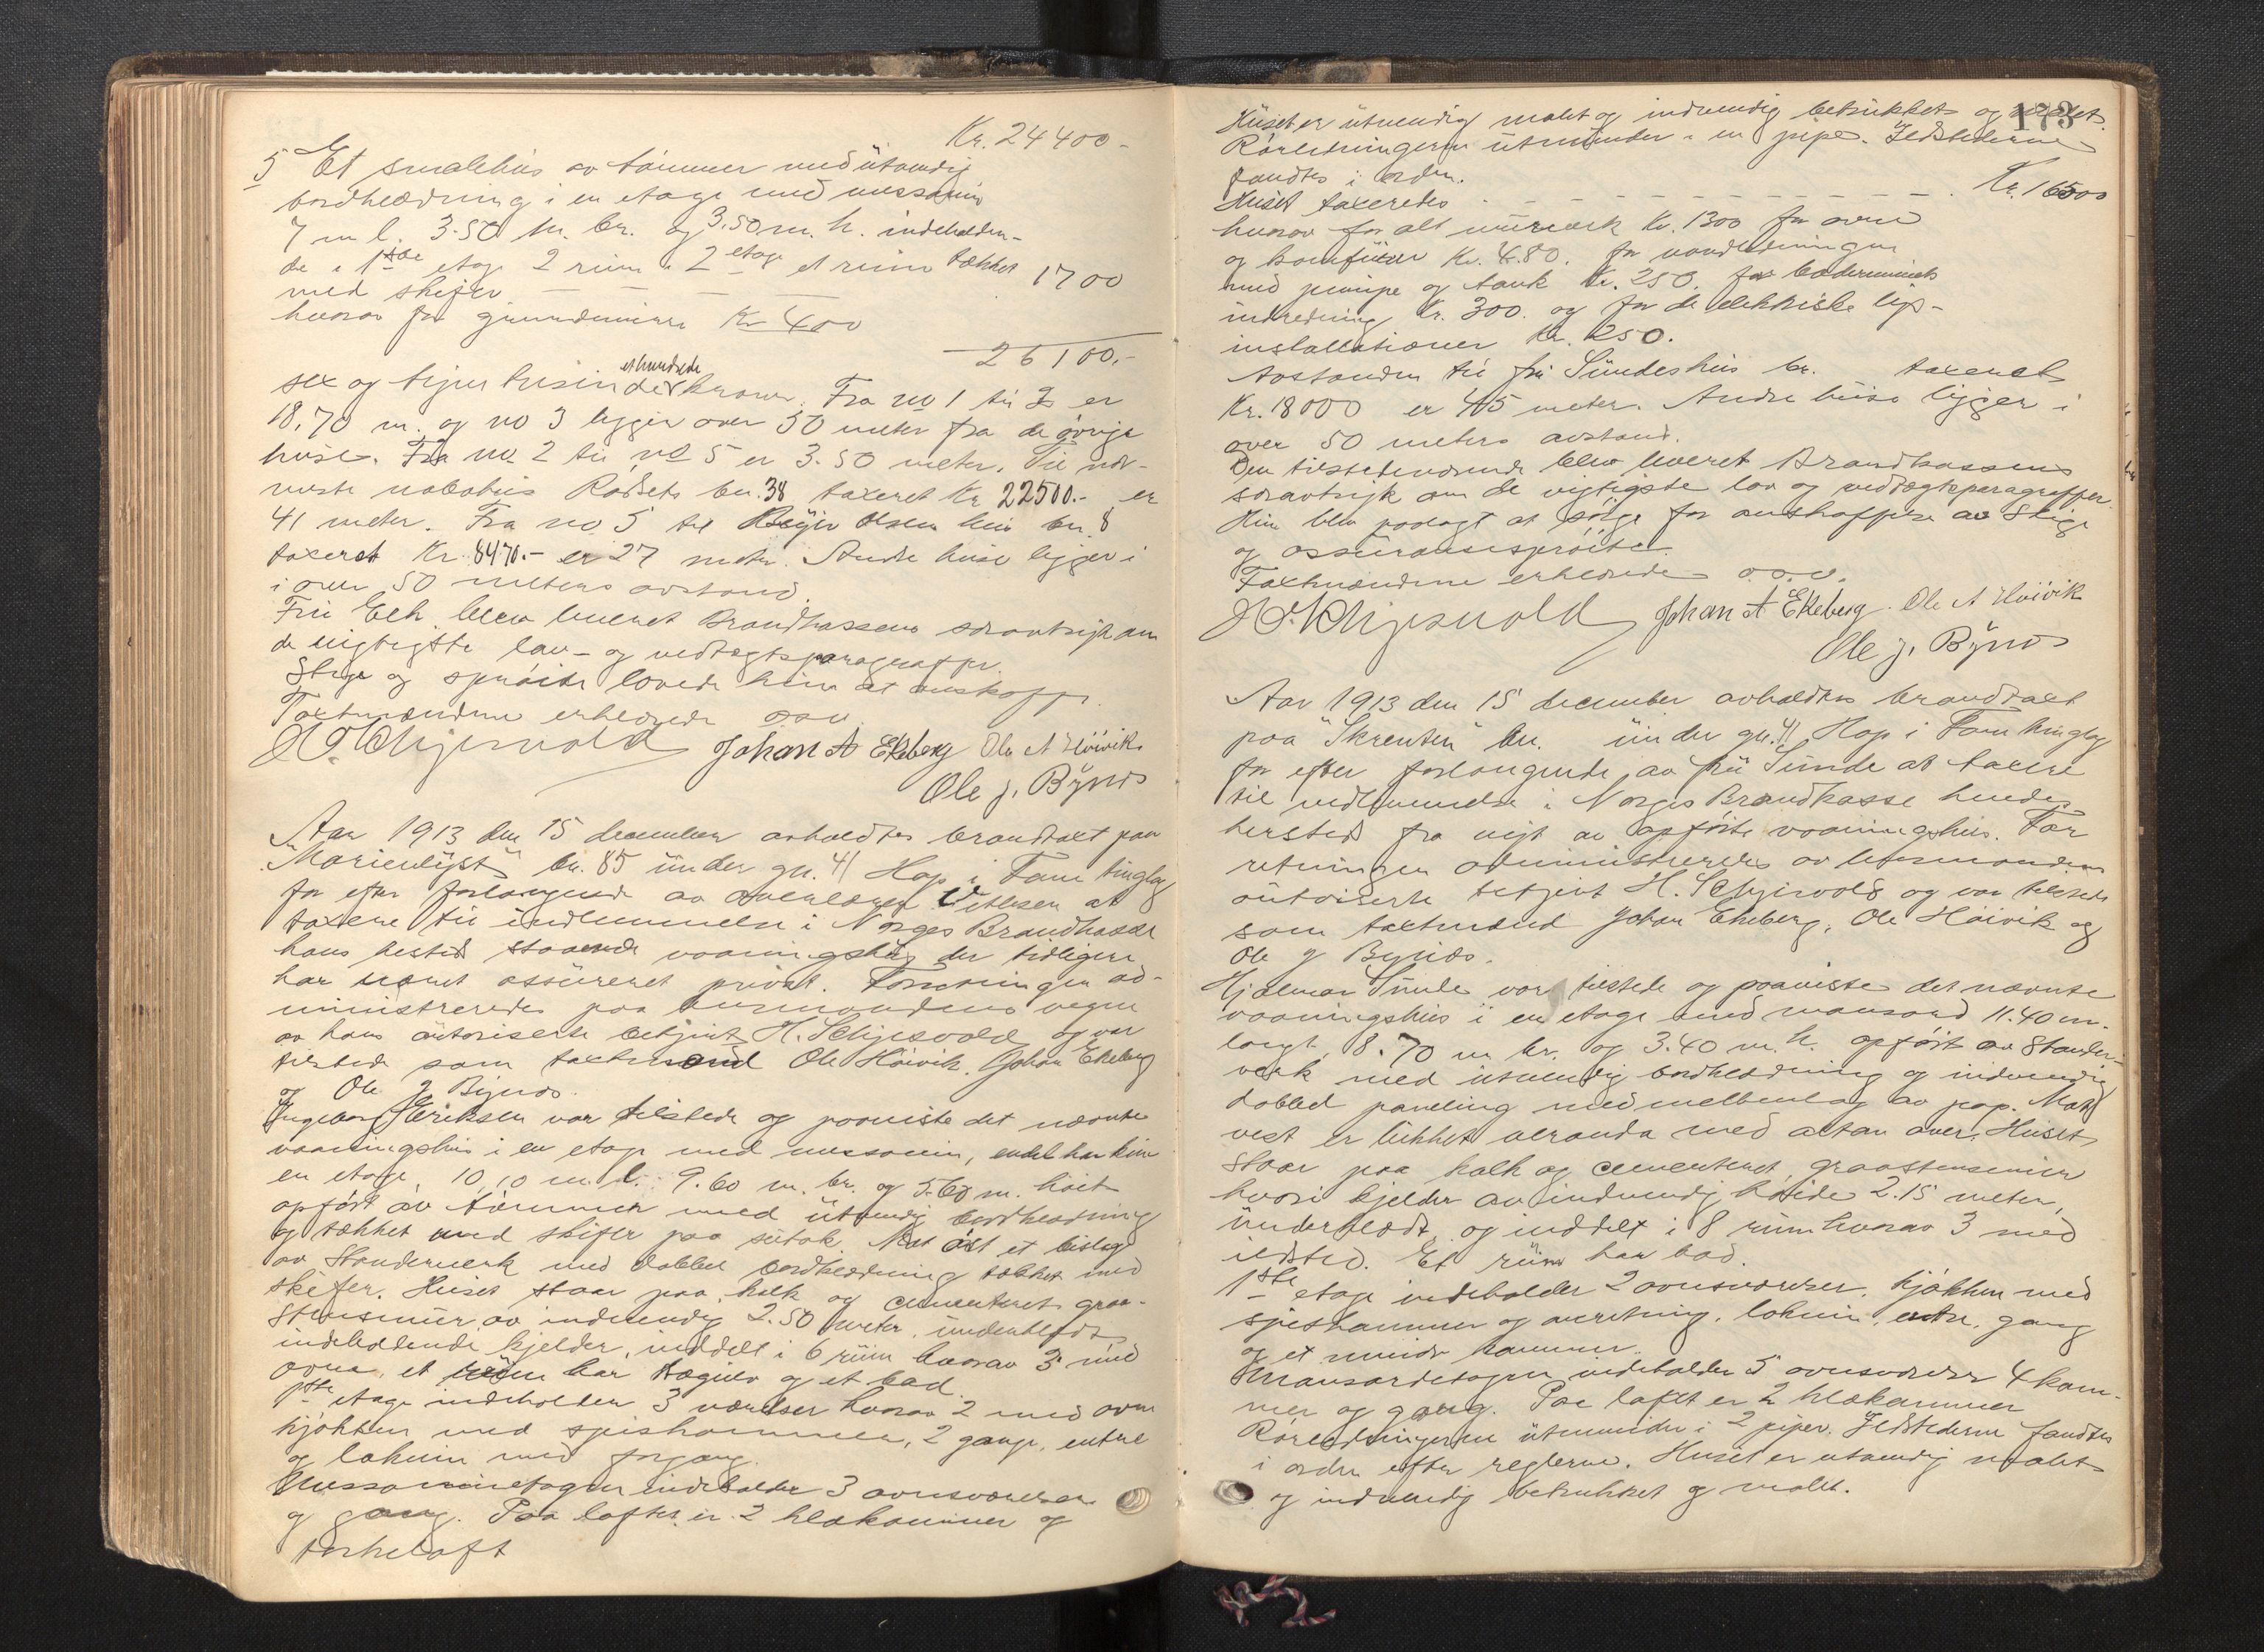 Kr. 24400-
5 Et smalehus av tømmer med utvendig
bordklædning i en etage med messanin
7 m l. 3.50 m. br. og 3.50 m. h. indeholden-
de i 1ste etage 2 rum i 2 etage et rum tækket
med skifer — — — — 1700
hvorav for grundmuren Kr 400
26100.-
sex og tjue tusinde ethundrede kroner. Fra no 1 til 2 er
18,70 m. og no 3 ligger over 50 meter fra de øvrige
huse. Fra no 2 til no 5 er 3.50 meter. Til nær-
meste nabohus Rødsets bn. 38 taxeret Kr 22500.- er
41 meter. Fra no 5 til Børjer Olsens hus bn. 8
taxeret Kr. 8470.- er 27 meter. Andre huse ligger i
i over 50 meters avstand.
Fru Eeh. blev leveret Brandkassens særavtryk om
de vigtigste lov- og vedtægtsparagraffer.
Stige og sprøite lovede hun at anskaffe.
Taxtmændene erklærede o.s.v.
H. Schjesvold Johan A Ekeberg Ole A Høivik
Ole J. Bynes
Aar 1913 den 15 december avholdtes brandtaxt paa
"Marienlyst" bn. 85 under gn. 41 Hop i Fane tinglag
for efter forlangende av overlærer Vetlesen at
taxere til indlemmelse i Norges Brandkasse
hans hersted staaende vaaningshus der tidligere
har været assureret privat. Forretningen ad-
ministreredes paa lensmandens vegne
av hans autoriserte betjent H. Schjesvold og var
tilstede som taxtmænd Ole Høivik, Johan Ekeberg
og Ole J Bynes.
Ingeborg Eriksen var tilstede og paaviste det nævnte
vaaningshus i en etage med messanin, endel har kun
en etage, 10,10 m. l. 9.60 m. br. og 5.60 m. høit
opført av tømmer med utvendig bordklædning
og tækket med skifer paa sutak. Mot øst et bislag
av standerverk med dobbel bordklædning tækket med
skifer. Huset staar paa kalk og cementeret graa-
stensmur av indvendig 2.50 meter, underklædt
indeholdende kjelder, inddelt i 6 rum hvorav 3 med
ovne, et rum har trægulv og et bad.
1ste etage indeholder 3 værelser hvorav 2 med ovne
kjøkken med spiskammer, 2 gange, entre
og lokum med forgang.
Messaninetagen indeholder 3 ovnsværelser
og gang. Paa loftet er 2 klækammer og
tørkeloft
173
Huset er utvendig malet og indvendig betrukket og malet.
Rørledningerne utmunder i en pipe. Ildstederne
fandtes i orden.
Huset taxeredes - - - - - - - - - Kr. 16500
hvorav for alt murverk Kr. 1300 for ovne
og komfurer Kr. 480. for vandledningen
med pumpe og tank Kr. 250. for baderummets
indredning Kr. 300. og for de elektriske lys-
installationer Kr. 250.
Avstanden til fru Sundes hus bn. taxeret
Kr. 18000 er 45 meter. Andre huse ligger i
over 50 meters avstand.
Den tilstedeværende blev leveret Brandkassens
særavtryk om de vigtigste lov og vedtægtsparagraffer.
Hun blev paalagt at sørge for anskaffelse av stige
og assuransesprøite.
Taxtmændene erklærede o.s.v.
H. Schjesvold Johan A Ekeberg. Ole A Høivik
Ole J. Bynes
Aar 1913 den 15 december avholdtes brandtaxt
paa "Skrenten" bn. under gn. 41 Hop i Fane tinglag
for efter forlangende av fru Sunde at taxere
til indlemmelse i Norges Brandkasse hendes
hersted fra nyt av opførte vaaningshus. For
retningen administreredes av lensmandens
autoriserte betjent H. Schjesvold og var tilstede
som taxtmænd Johan Ekeberg, Ole Høivik og
Ole J Bynes.
Hjalmar Sunde var tilstede og paaviste det nævnte
vaaningshus i en etage med mansard 11.40 m.
langt, 8.70 m br. og 3.40 m. h. opført av stander-
verk med utvendig bordklædning og indvendig
dobbel paneling med mellemlag av pap. Mot
vest er lukket veranda med altan over. Huset
staar paa kalk og cementeret graastensmur
hvori kjelder av indvendig høide 2.15 meter,
underklædt og inddelt i 8 rum hvorav 3 med
ildsted. Et rum har bad.
1ste etage indeholder 2 ovnsværelser, kjøkken med
spiskammer og anretning, lokum, entre, gang
og et mindre kammer.
Mansardetagen indeholder 5 ovnsværelser 4 kam-
mer og gang. Paa loftet er 2 klækammer
Rørledningerne utmunder i 2 piper. Ildstederne fandtes
i orden efter reglerne. Huset er utvendig malet
og indvendig betrukket og malet.